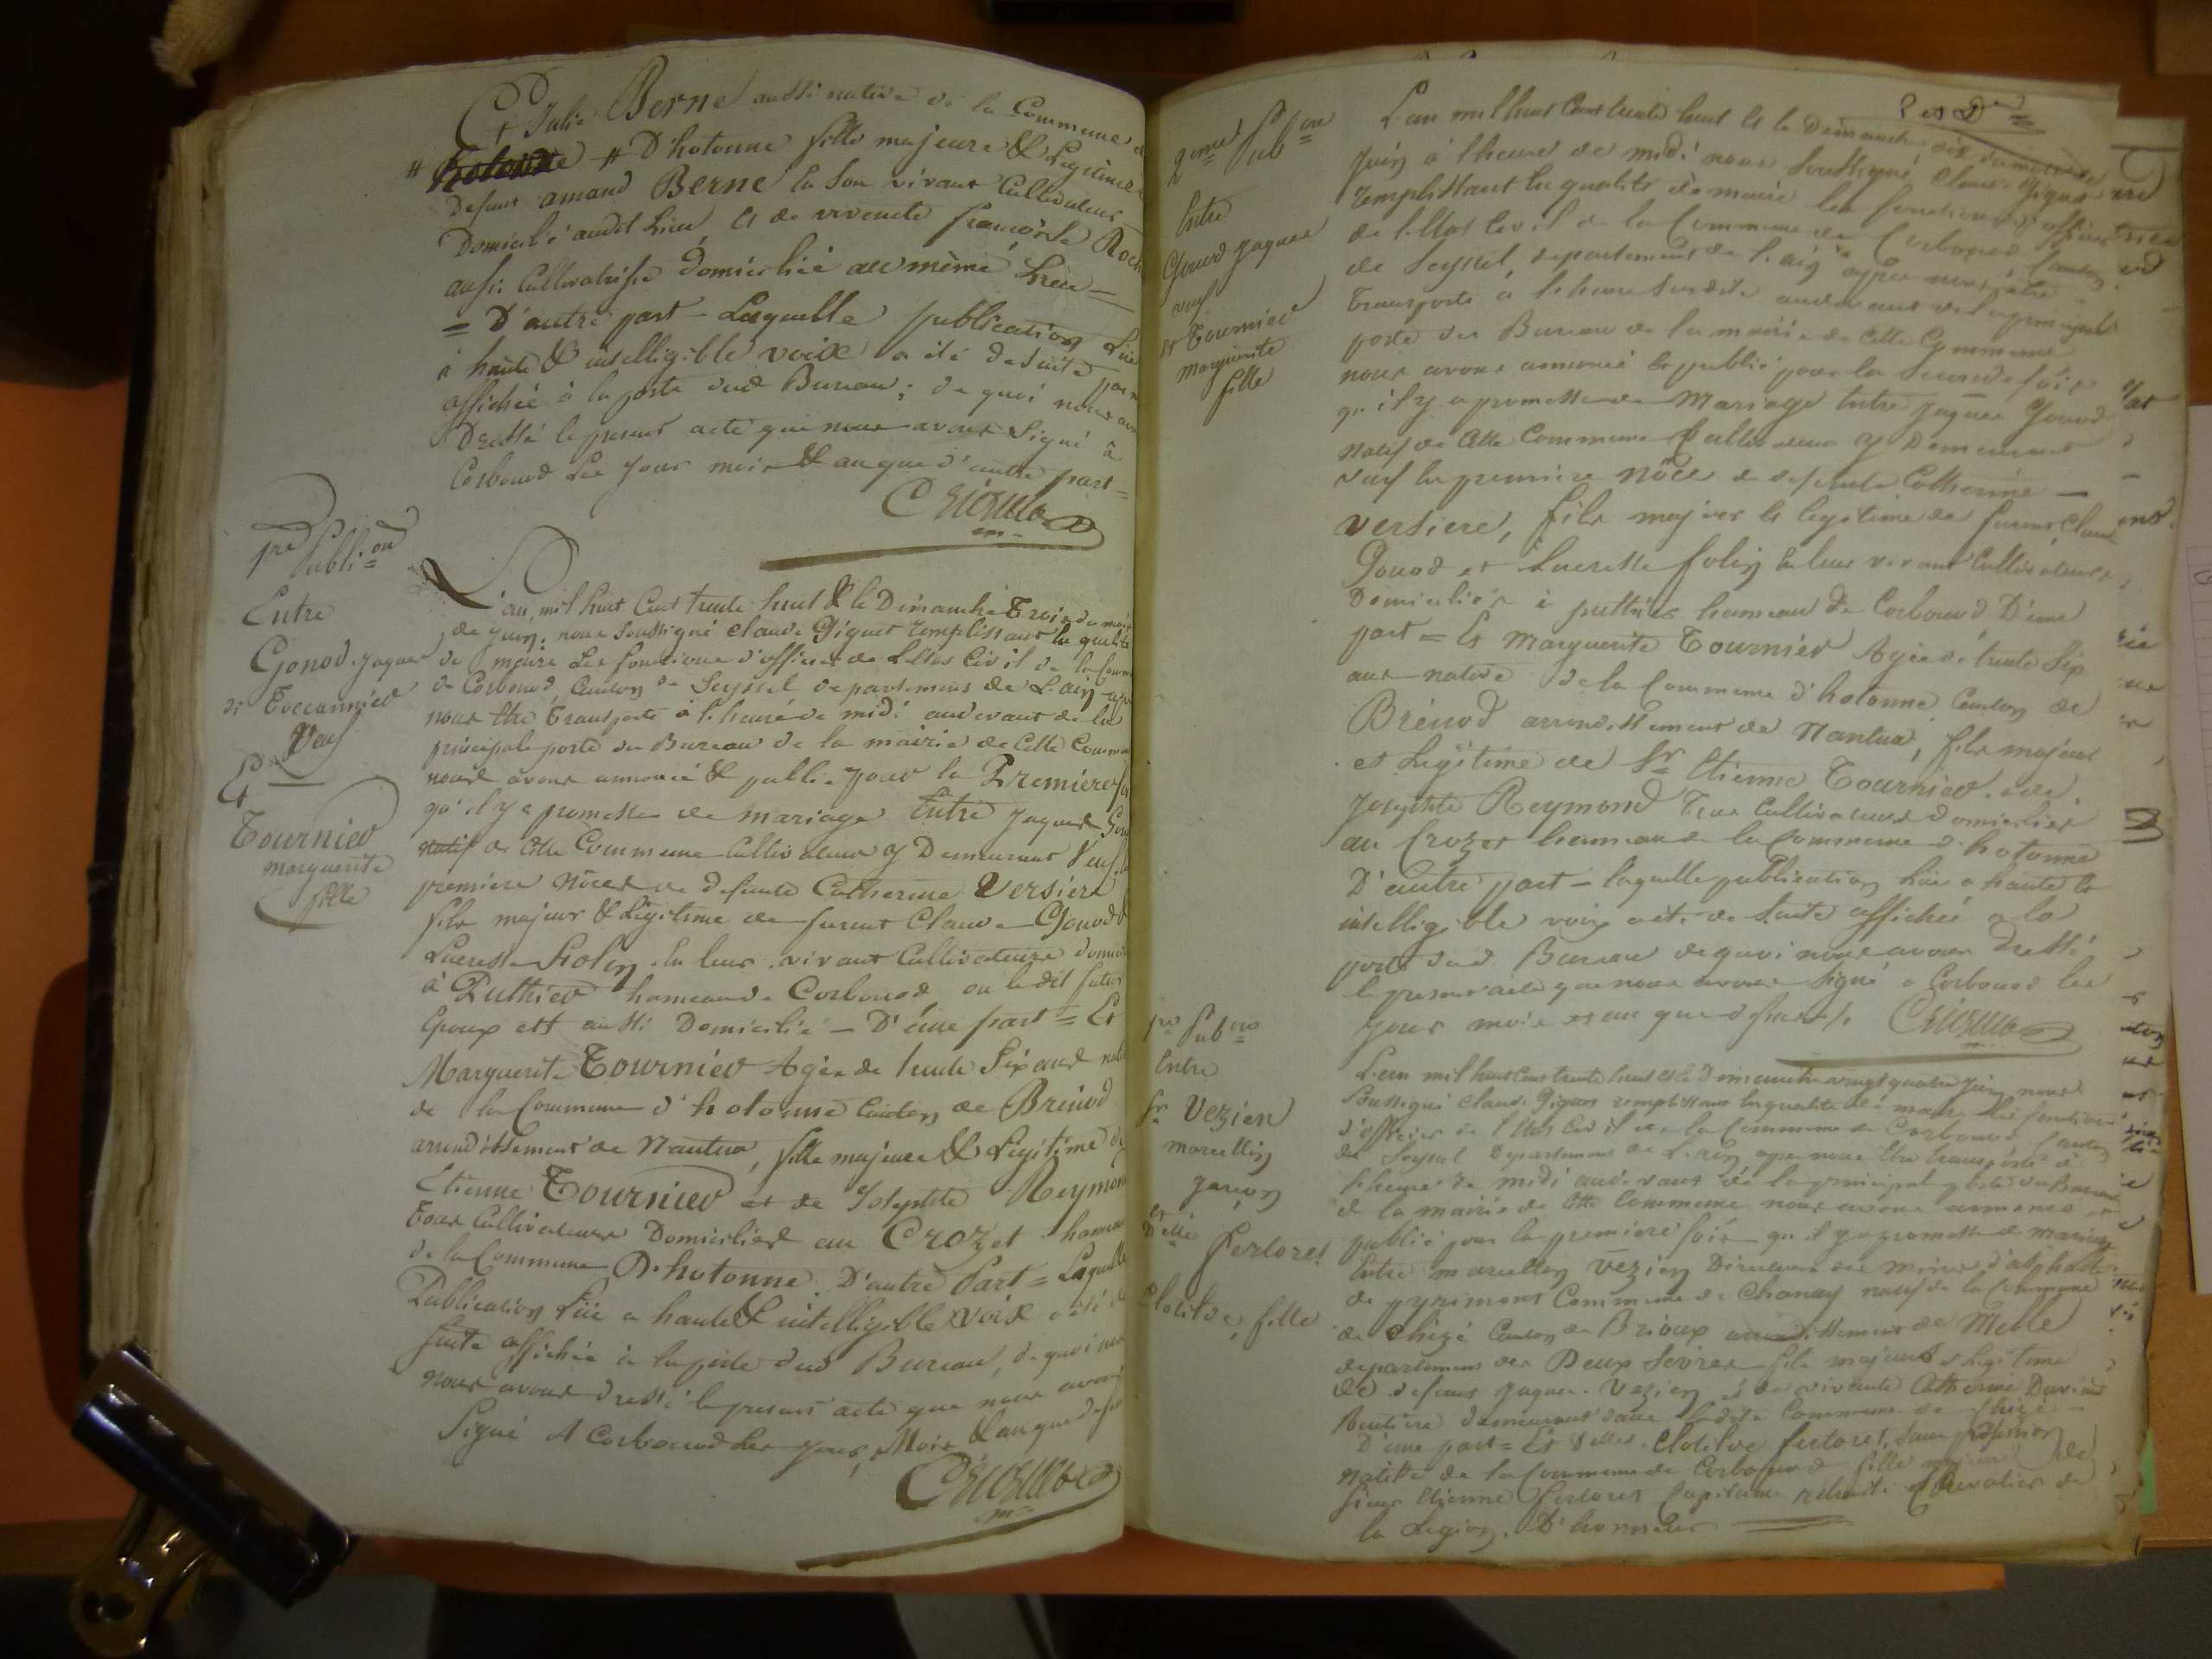 Et Julie Berne aussi native de la Commune
# D'hotonne fille majeure & Legitime
defunt amand Berne en son vivant Cultivateur
Domicilié audit Lieu, et de vivente francoise Roch
aussi Cultivatrisse domiciliée au même Lieu =
= D'autre part - Laquelle publication Luë
à haute & intelligible voix a été de suite
affichée à la porte dud Bureau ; de quoi nous
Dressé le present acte que nous avons Signé à
Corbonod Les jour mois & an que d'autre part =
1re Publi=on
Entre
Gonod jaques
Veuf
Et
Tournier
marguerite
fille
L'an mil huit Cent trente huit & le Dimanche Trois du mois
de juin, nous Soussigné Claude Giguet remplissant la qualité
de maire Les fonctions d'officier de L'Etat Civil de la Comm
de Corbonod, Canton de Seyssel departement de L'ain
nous être transporté à l'heure de midi audevant de la
principale porte du Bureau de la mairie de Cette Commune
nous avons annoncé & publié pour la Premiere
qu'il y a promesse de mariage Entre jaques
natif de Cette Commune Cultivateur y Demeurant Veuf
premiere nôces de defunte Catherine Versiere
fils majeur & Legitime de furent Claude Gonod
Lucresse folin en leur vivant Cultivateurs
à Puthier hameau de Corbonod ou le dit futur
Epoux est aussi Domicilié - D'une part = Et
Marguerite Tournier Agée de trente Six ans
de la Commune d'hotonne Canton de Brénod
arrondissement de Nantua, fille majeure & Legitime
Etienne Tournier et de Josephte Reymond
tous Cultivateurs Domiciliés au Crozet hameau
de la Commune D'hotonne. D'autre Part = Laquelle
Publication Luë a haute & intelligible voix a été de
suite affichée à la porte dud Bureau, de quoi
nous avons dressé le present acte que nous avons
Signé A Corbonod Les jour, Mois & an que
2eme Pub=on
Entre
Gonod jaques
veuf
et Tournier
marguerite
fille
L'an mil huit Cent trente huit et le Dimanche dix du mois de
juin à l'heure de midi nous Soussigné Claude Giguet
remplissant la qualité de maire les fonctions d'officier
de l'Etat Civil de la Commune de Corbonod Canton
de Seyssel, departement de l'ain apres nous être
transporté à l'heure Susdite audevant de la principale
porte du Bureau de la mairie de Cette Commune
nous avons annoncé & publié pour la Seconde fois
qu'il y a promesse de Mariage Entre jaques Gonod
natif de Cette Commune Cultivateur y Demeurant
veuf en premiere nôce de defunte Catherine -
versiere, fils majeur et legitime de furent Claude
Gonod et Lucresse folin en leur vivant Cultivateurs
Domiciliés à puthier hameau de Corbonod D'une
part = Et Marguerite Tournier Agée de trente Six
ans native de la Commune d'hotonne Canton de
Brénod arrondissement de Nantua, fille majeur
et Legitime de Sr Etienne Tournier et de
Josephte Reymond Tous Cultivateurs domiciliés
au Crozet hameau de la Commune d'hotonne
D'autre part - laquelle publication luë a haute &
intelligible voix a été de Suite affichée a la
porte dud Bureau de quoi nous avons dressé
le present acte que nous avons Signé a Corbonod les
jour mois et an que
1re Pub=on
Entre
Sr Vezien
marcellin
garçon
et
Delle fertoret
Clotilde, fille
L'an mil huit Cent trente huit et le Dimanche vingt quatre juin nous
Soussigné Claude Giguet remplissant la qualité de maire les fonctions
d'officier de l'Etat Civil de la Commune de Corbonod Canton
de Seyssel departement de L'ain apres nous être transporté à
l'heure de midi audevant de la principal porte du Bureau
de la mairie de Cette Commune nous avons annoncé et
publié pour la premiere fois qu'il y a promesse de mariage
Entre marcellin Vezien Directeur des mines d'asphalte
de pyrimont Commune de Chanay natif de la Commune
de Chizé Canton de Brioux arrondissement de Melle
departement des Deux Sevres fils majeur et Legitime
de defunt jaques Vezien et de vivante Catherine
Rentiere demeurant dans ladite Commune de Chizé -
D'une part = Et Delle Clotilde fertoret, sans profession
native de la Commune de Corbonod fille majeure de
sieur Etienne fertoret Capitaine retraité Chevalier de
la Legion D'honneur